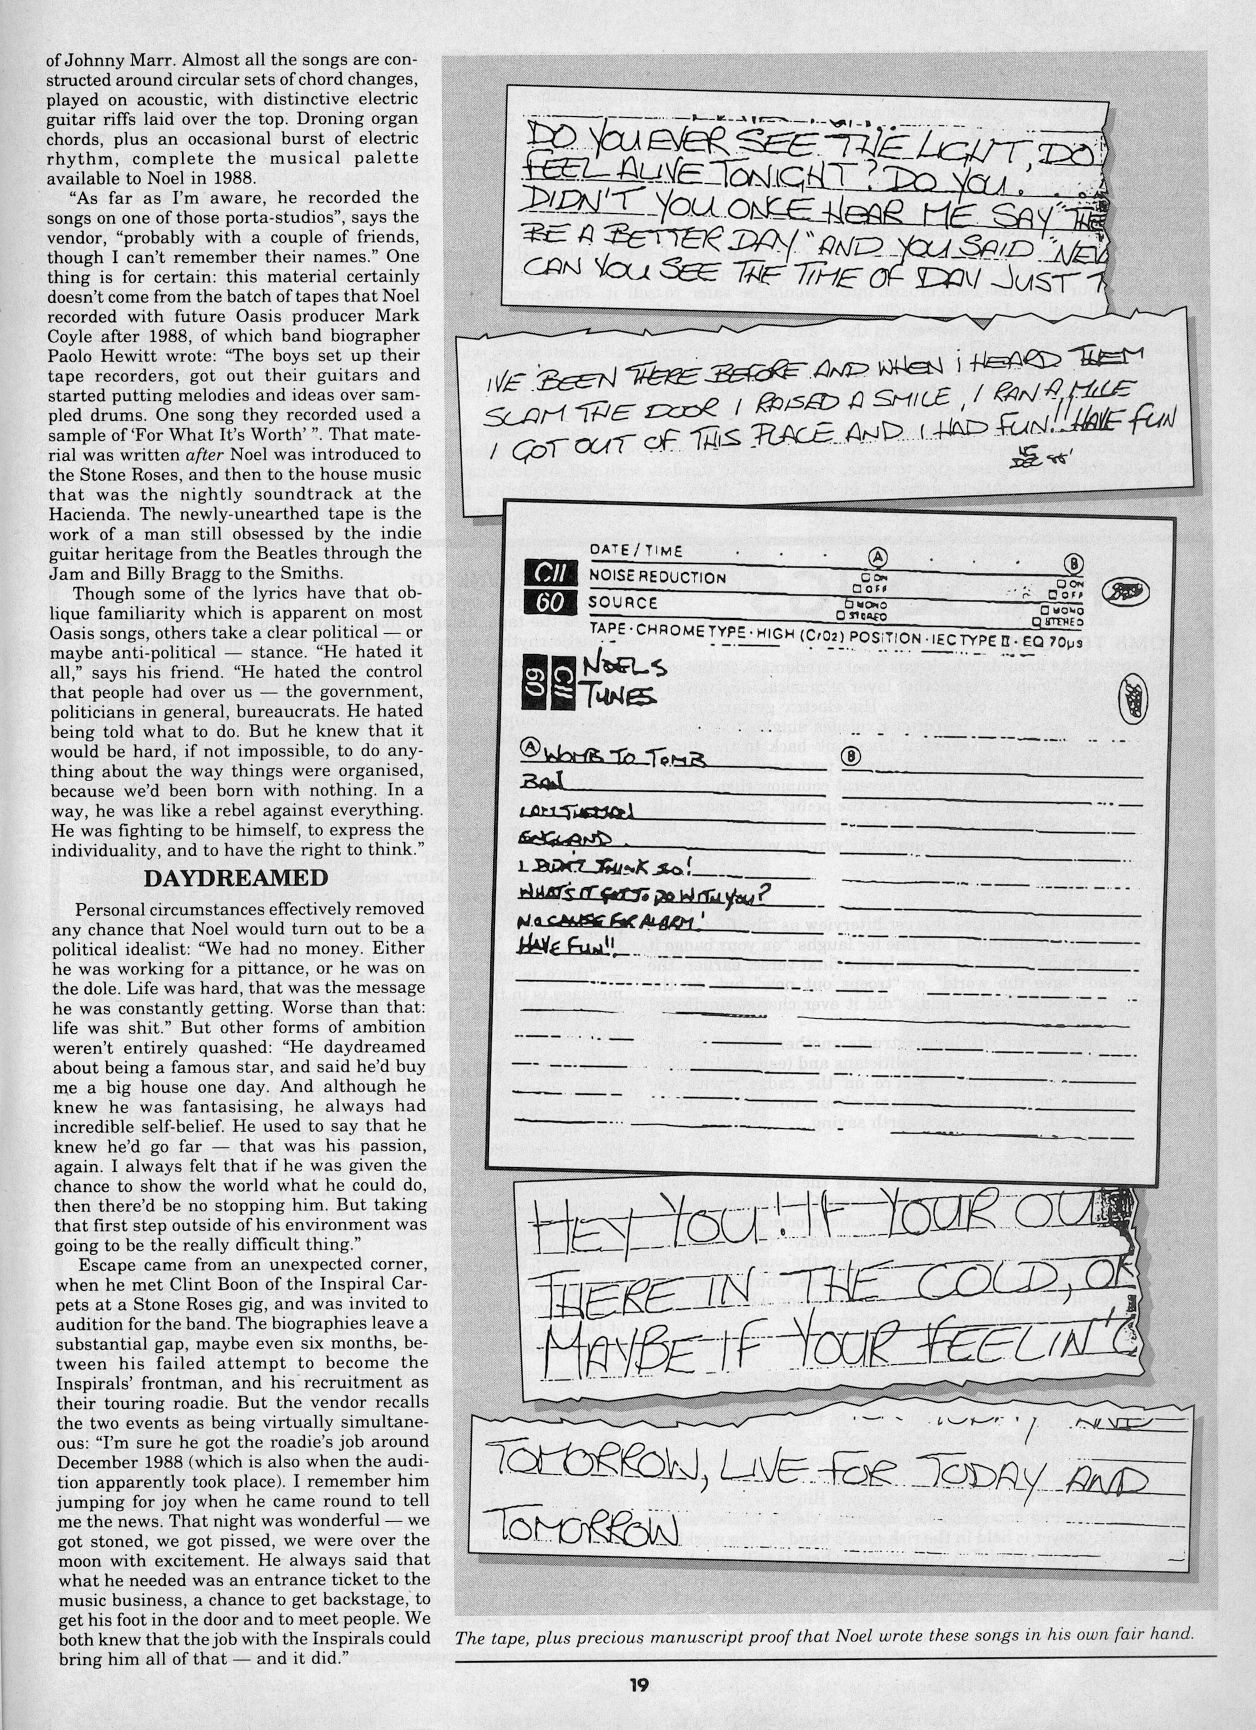 of Johnny Marr. Almost all the songs are con-
structed around circular sets of chord changes,
played on acoustic, with distinctive electric
guitar riffs laid over the top. Droning organ
chords, plus an occasional burst of electric
rhythm, complete the musical palette
available to Noel in 1988.
“As far as I’m aware, he recorded the
songs on one of those porta-studios”, says the
vendor, “probably with a couple of friends,
though I can’t remember their names.” One
thing is for certain: this material certainly
doesn’t come from the batch of tapes that Noel
recorded with future Oasis producer Mark
Coyle after 1988, of which band biographer
Paolo Hewitt wrote: “The boys set up their
tape recorders, got out their guitars and
started putting melodies and ideas over sam-
pled drums. One song they recorded used a
sample of ‘For What It’s Worth’ ”. That mate-
rial was written after Noel was introduced to
the Stone Roses, and then to the house music
that was the nightly soundtrack at the
Hacienda. The newly-unearthed tape is the
work of a man still obsessed by the indie
guitar heritage from the Beatles through the
Jam and Billy Bragg to the Smiths.
Though some of the lyrics have that ob-
lique familiarity which is apparent on most
Oasis songs, others take a clear political — or
maybe anti-political — stance. “He hated it
all,” says his friend. “He hated the control
that people had over us — the government,
politicians in general, bureaucrats. He hated
being told what to do. But he knew that it
would be hard, if not impossible, to do any-
thing about the way things were organised,
because we’d been born with nothing. In a
way, he was like a rebel against everything.
He was fighting to be himself, to express the
individuality, and to have the right to think.”
DAYDREAMED
Personal circumstances effectively removed
any chance that Noel would turn out to be a
political idealist: “We had no money. Either
he was working for a pittance, or he was on
the dole. Life was hard, that was the message
he was constantly getting. Worse than that:
life was shit.” But other forms of ambition
weren’t entirely quashed: “He daydreamed
about being a famous star, and said he’d buy
me a big house one day. And although he
knew he was fantasising, he always had
incredible self-belief. He used to say that he
knew he’d go far — that was his passion,
again. I always felt that if he was given the
chance to show the world what he could do,
then there’d be no stopping him. But taking
that first step outside of his environment was
going to be the really difficult thing.”
Escape came from an unexpected corner,
when he met Clint Boon of the Inspiral Car-
pets at a Stone Roses gig, and was invited to
audition for the band. The biographies leave a
substantial gap, maybe even six months, be-
tween his failed attempt to become the
Inspirals’ frontman, and his recruitment as
their touring roadie. But the vendor recalls
the two events as being virtually simultane-
ous: “I’m sure he got the roadie’s job around
December 1988 (which is also when the audi-
tion apparently took place). I remember him
jumping for joy when he came round to tell
me the news. That night was wonderful — we
got stoned, we got pissed, we were over the
moon with excitement. He always said that
what he needed was an entrance ticket to the
music business, a chance to get backstage, to
get his foot in the door and to meet people. We
both knew that the job with the Inspirals could
bring him all of that — and it did.”
DO YOU EVER SEE THE LIGHT, DO
FEEL ALIVE TONIGHT? DO YOU.
DIDN'T YOU ONCE HEAR ME SAY "THE
BE A BETTER DAY," AND YOU SAID "NEV
CAN YOU SEE THE TIME OF DAY JUST
IVE BEEN THERE BEFORE AND WHEN I HEARD THEM
SLAM THE DOOR I RAISED A SMILE, I RAN A MILE
I GOT OUT OF THIS PLACE AND I HAD FUN!! HAVE FUN
15
DEC 88'
DATE/TIME A B
CII NOISE REDUCTION ON OFF ON OFF
60 SOURCE MONO STEREO MONO STEREO
TAPE·CHROME TYPE·HIGH (CrO2) POSITION·IEC TYPE II·EQ 70µs
60 CII NOELS
TUNES
A WOMB TO TOMB B
BAD
I AM THE MAN
ENGLAND
I DIDN'T THINK SO!
WHAT'S IT GOT TO DO WITH YOU?
NO CAUSE FOR ALARM!
HAVE FUN!!
HEY YOU! IF YOUR OU
THERE IN THE COLD, OR
MAYBE IF YOUR FEELIN'
TOMORROW, LIVE FOR TODAY AND
TOMORROW
The tape, plus precious manuscript proof that Noel wrote these songs in his own fair hand.
19